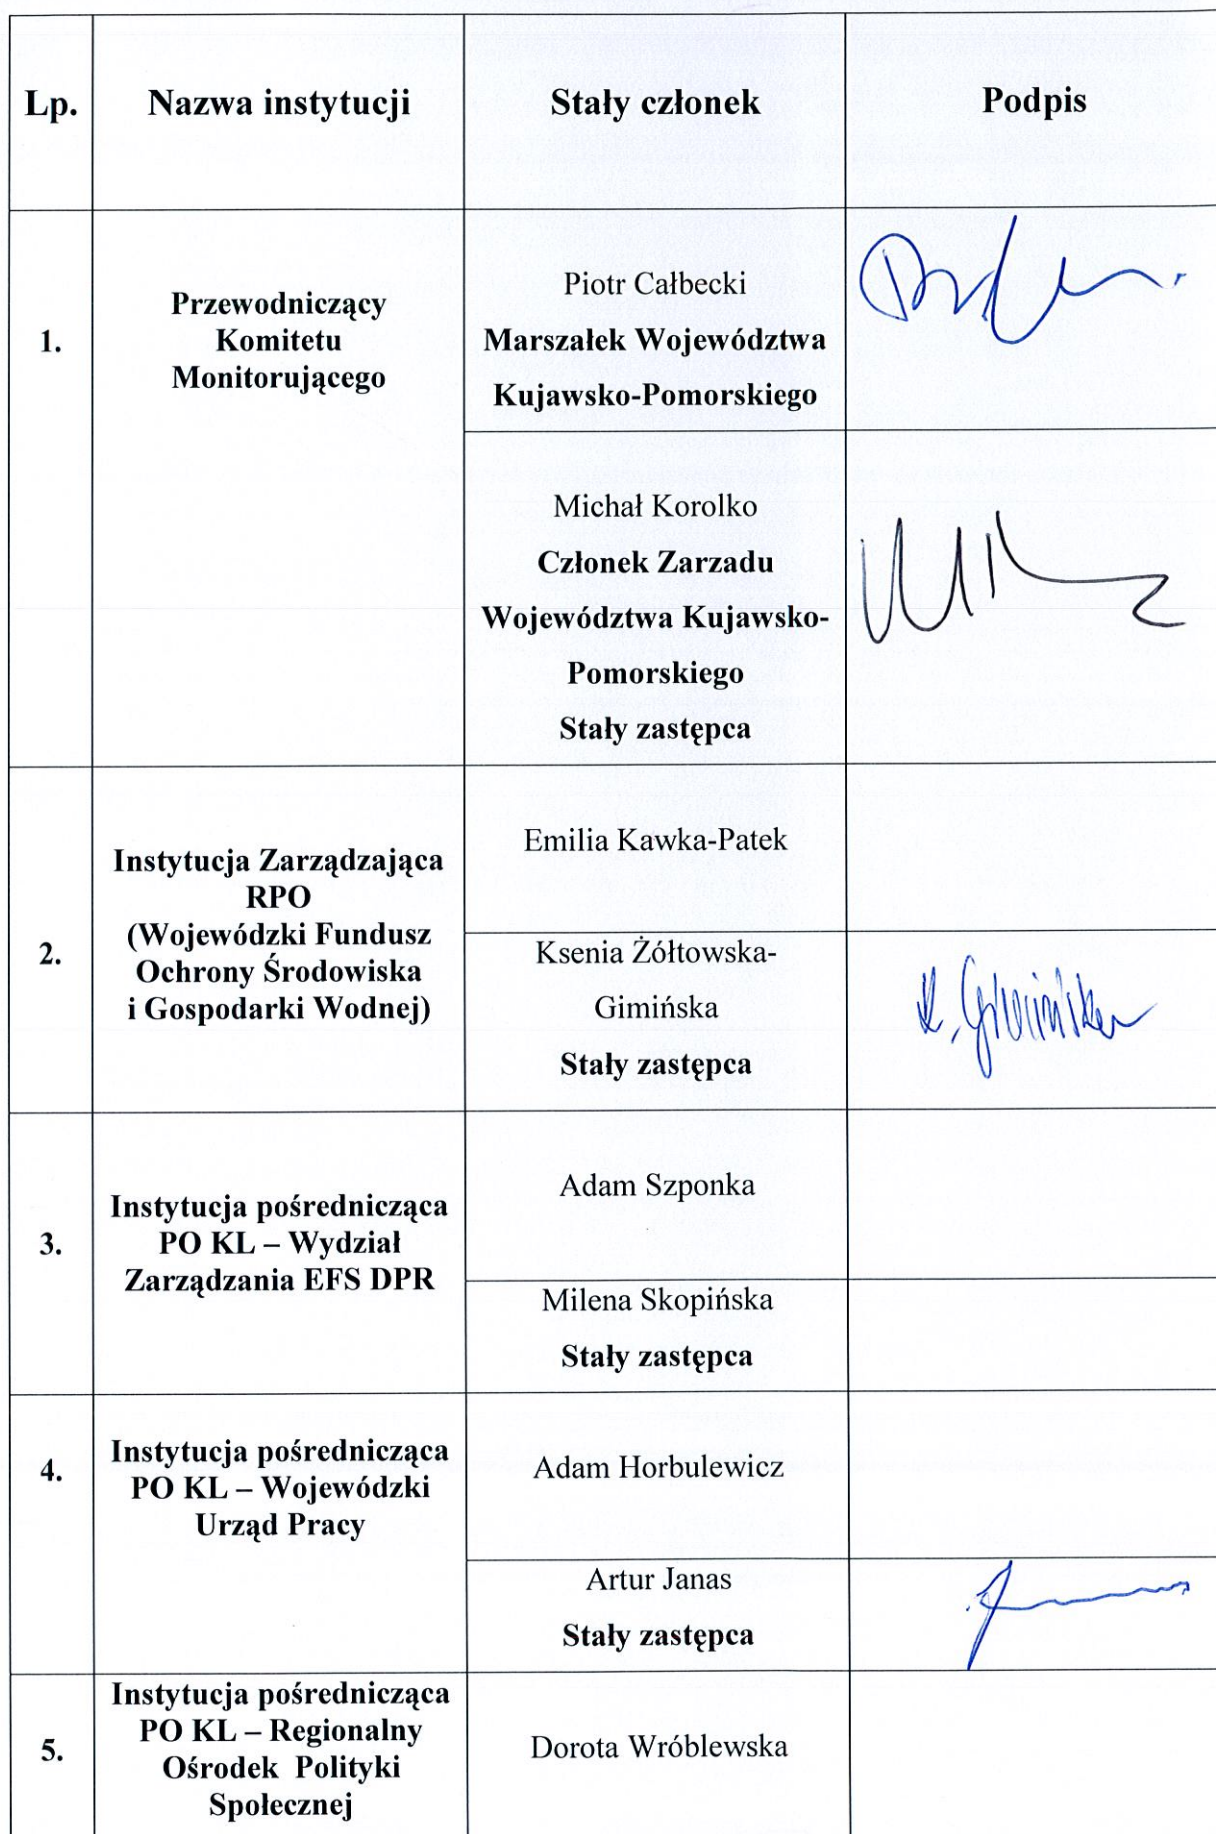 Lp. Nazwa instytucji Stały członek Podpis
1.
Przewodniczący
Komitetu
Monitorującego
Piotr Całbecki
Marszałek Województwa
Kujawsko-Pomorskiego
Michał Korolko
Członek Zarzadu
Województwa Kujawsko-
Pomorskiego
Stały zastępca
2.
Instytucja Zarządzająca
RPO
(Wojewódzki Fundusz
Ochrony Środowiska
i Gospodarki Wodnej)
Emilia Kawka-Patek
Ksenia Żółtowska-
Gimińska
Stały zastępca
K. Gimińska
3.
Instytucja pośrednicząca
PO KL – Wydział
Zarządzania EFS DPR
Adam Szponka
Milena Skopińska
Stały zastępca
4.
Instytucja pośrednicząca
PO KL – Wojewódzki
Urząd Pracy
Adam Horbulewicz
Artur Janas
Stały zastępca
5.
Instytucja pośrednicząca
PO KL – Regionalny
Ośrodek Polityki
Społecznej
Dorota Wróblewska